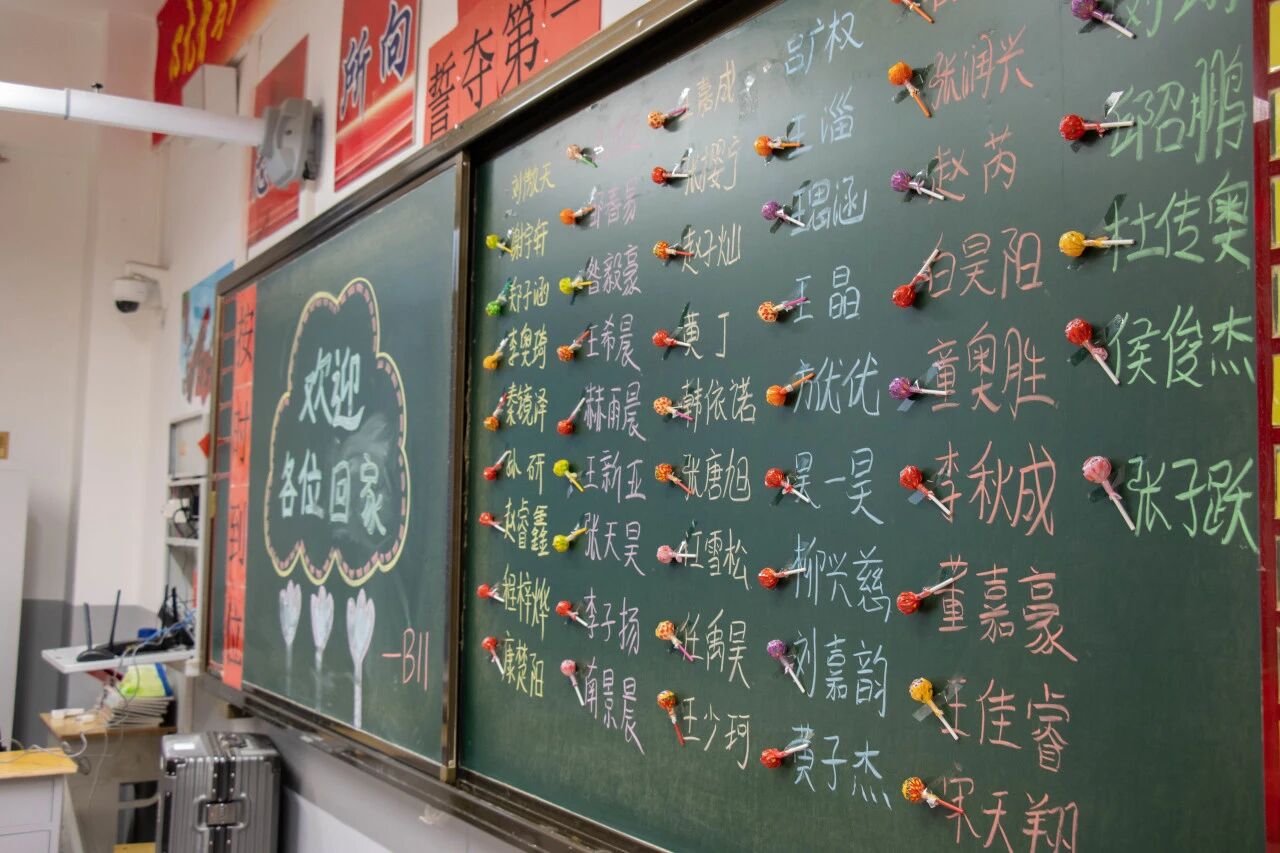 所向
誓夺第一
按时到位
欢迎
各位回家
-B11
刘傲天
谢宇轩
郑子涵
李奥琦
秦镜泽
孙研
赵睿鑫
程梓烨
康楚阳
郭春易
昝毅豪
王希晨
赫雨晨
王新亚
张天昊
李子扬
南景晨
嘉成
张撄宁
赵子灿
黄丁
韩依诺
张唐旭
汪雪松
任禹昊
王少珂
吕广权
王淄
王思涵
王晶
亢优优
吴一昊
柳兴慈
刘嘉韵
黄子杰
张润兴
赵芮
白昊阳
童奥胜
李秋成
董嘉豪
王佳睿
宋天翔
邱绍鹏
杜传奥
侯俊杰
张子跃